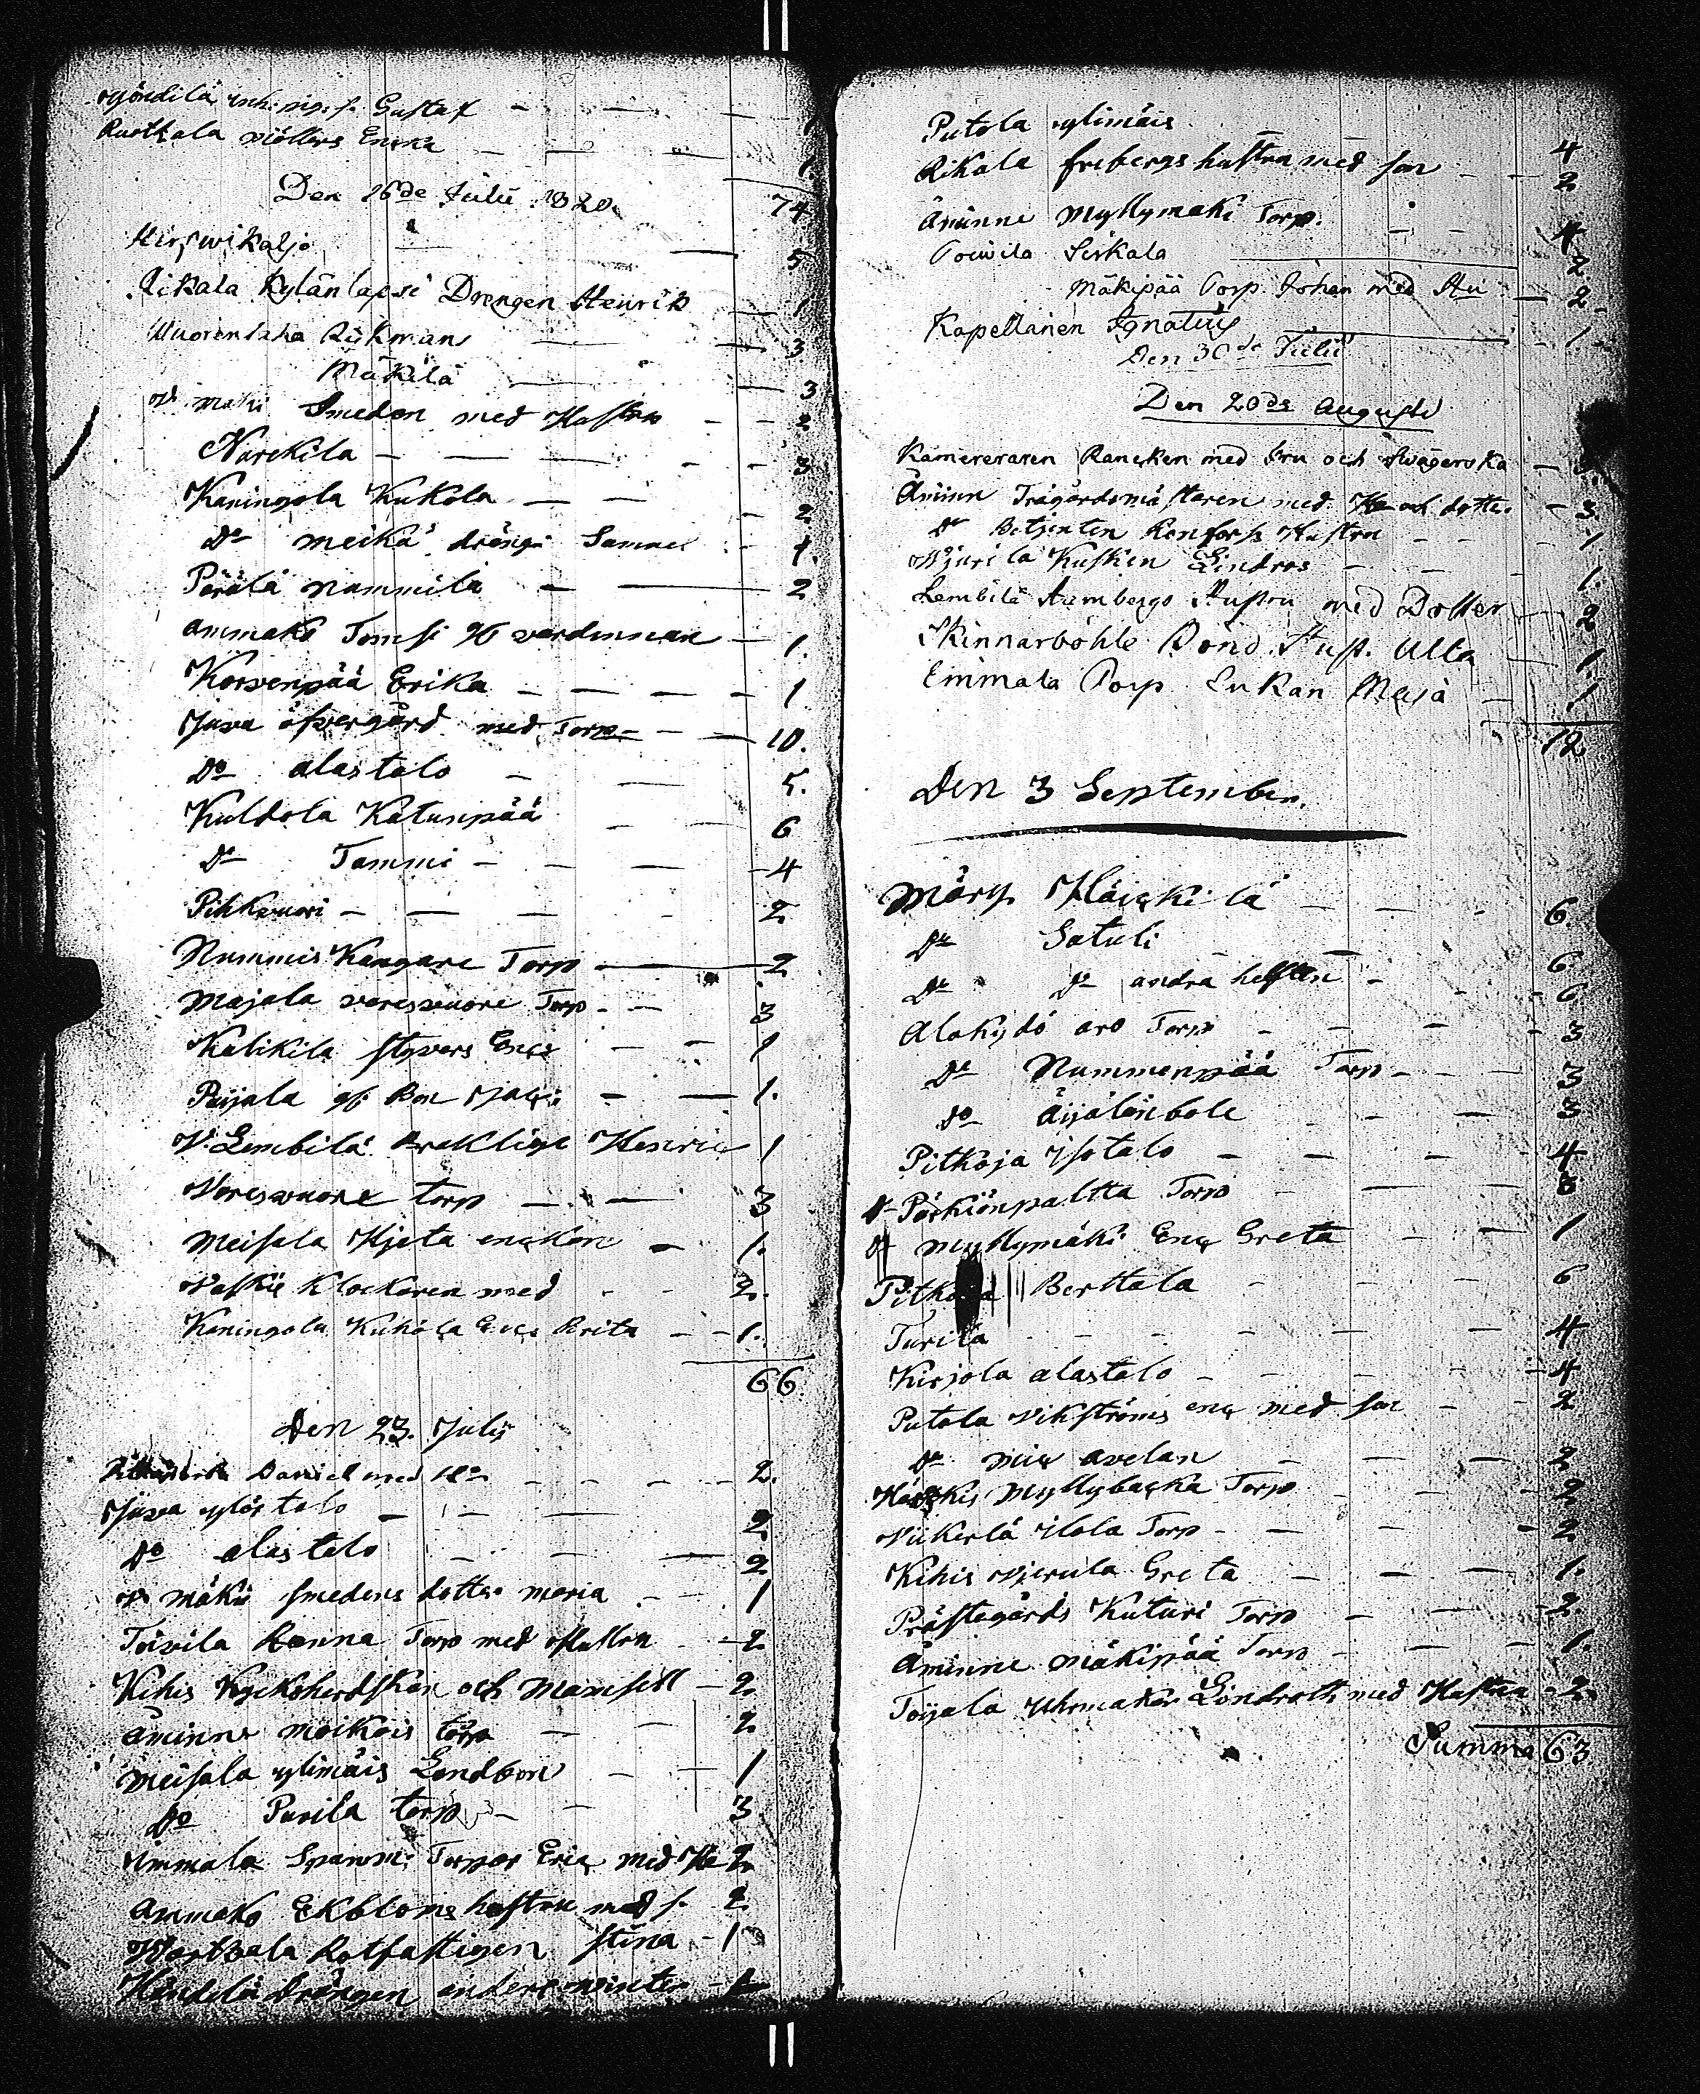 inh. pig. s. Gustaf — — 1
Ruotkala möllers Enka — — — 1.
74
Den 16de Julii 1820.
Hirswikaljo — — 5
Rikala Kylänlapsi Drengen Henrik — 1
Wuorenlaha Rükman — — 3
Mäkilä — — 3
W. mäki Smeden med Hustru - - 2
Narckila - — — - - 3
Kaningola Kukola — — - 2
Do meikä drängn Samuel - 1.
Pärälä nummila — — 2
ammako Tomsi gf värdinnan — 1.
Korvenpää Erika — — — - 1
Juva öfvergård med Torp - — 10.
Do alastalo - — 5.
Kuldola Katunpää - — 6
Do Tammi - — — - 4
Pihkvuori - — — - 2
Nummis Kangare Torp — 2
Majala varesvuore Torp - — 3
Kalikila styvers Enka — - 1
Pajala gf. Bon — — 1.
W. Lembilä Bräklige Henric 1
Varesvuore torp — — 3
Meisala Hjeta enckan — 1.
Vaskio Klockaren med - - 2.
Kaningola Kukola Enka Brita — - 1.
66.
Den 23. Julij
Daniel med H:u - - - - 2.
Juva ylöstalo — - — - 2
Do alastalo - - — 2
W mäki smedens dotter maria - - 1
Toivila Ranna Torp med Hustru - 2
Kihis Kyckoherdskan och Mamsell - 2.
åminne moikois torp — — 2
Meisala ylimäis Lendbom - + 1
Do Purila torp - - 3
Immala Spannis Torpar Eric med Hu 2.
Ammako Ekbloms hustru med s. 2
Wartsala Rotfattigen Stina - 1
Händelä drängen anders winter - 1
Putola ylimäis — — 4
Rikala fribergs hustru med son - — 2
Åminne Myllymäki Torp. - - 4
Toiwila Siskala — 2
Mäkipää Torp. Johan med Hu — 2
Kapellanen Ignatius — - 1 -
Den 30de Julii
Den 20de Augusti
Kamereraren Rancken med Fru och Swägerska — 3.
Åminn Trägårdsmästaren med Hu och dotter - 3
Do Betjenten Renfors Hustru - - - 1
Wjurila Kusken Lindros — - - - 1.
Lembilä Hustru med Dotter — 2
Skinnarböhle Bond. Hust. Ulla — 1.
Eimmala Torp Lukan Maja — 1
12
Den 3 September.
Märy Häickilä - - - 6.
Do Satuli - — 6
Do Do andra helften - - 6
Alakydö aro Torp - - — - 3
Do Nummenpää Torp - - - 3
Do Äijälänbole - - — 3
Pitkoja isotalo — - — - 4
Pärkiönpaltta Torp - — - 3
Do myllymäki Enk Greta - - — 1
Pitkoja Berttala - - - - 6
Turila - - - - — — 4
Kirjola alastalo - - - - - 4
Putola Vikströms enk med son - - 2
Do avelan - — — 2
Myllybacka Torp - — - 2
Vikerlä ilola Torp - — - - 2
Kihis Vjerula Greta - — — — 1.
Prästegårds Kuturi Torp — - - 2.
Åminne mäkipää Torp - — - 1.
Toijala Uhrmakar Lindroth med Hustru - 2.
Summa 63